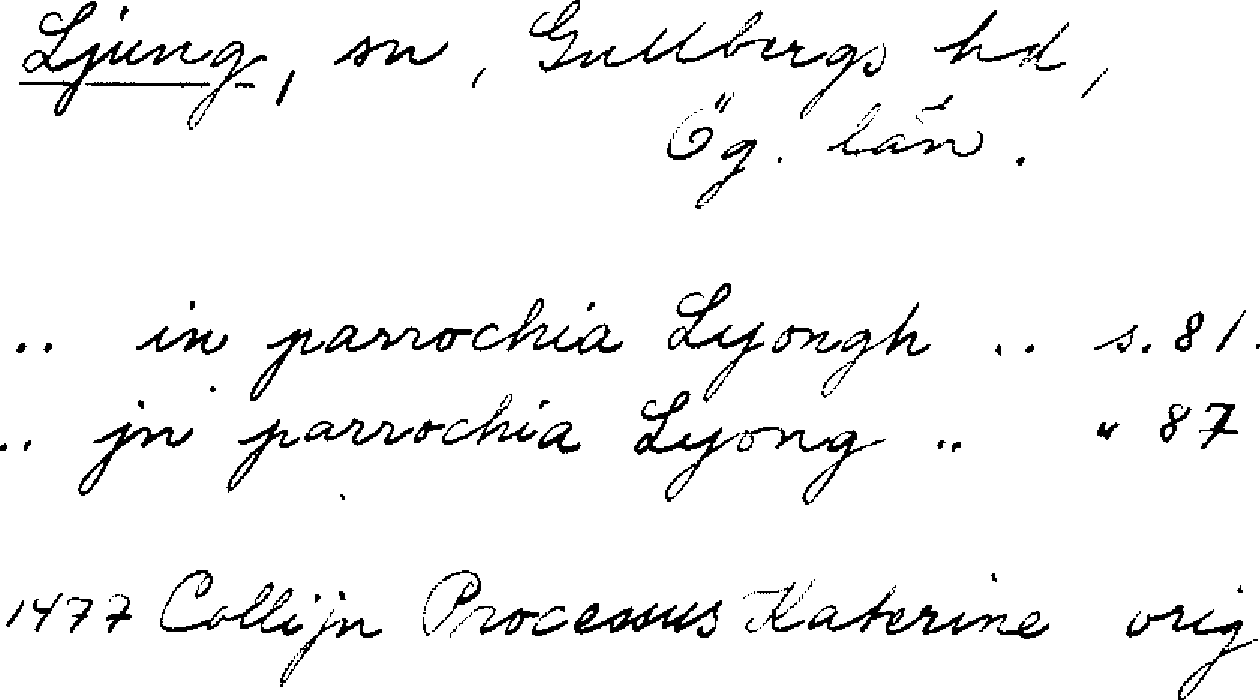 Ljung, sn, Gullbergs hd,
Ög. län.
.. in parrochia Lyongh .. s. 81.
.. jn parrochia Lyong .. " 87
1477 Collijn Processus Katerine orig